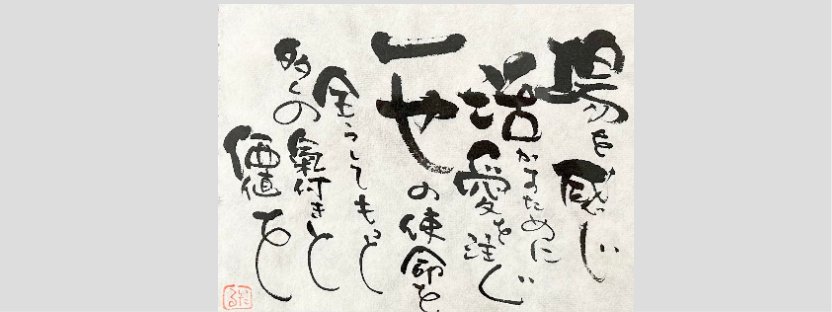 場を感じ
活かすために
愛を注ぐ
一せの使命を
全うしてもっと
多くの
氣付きと
価値を